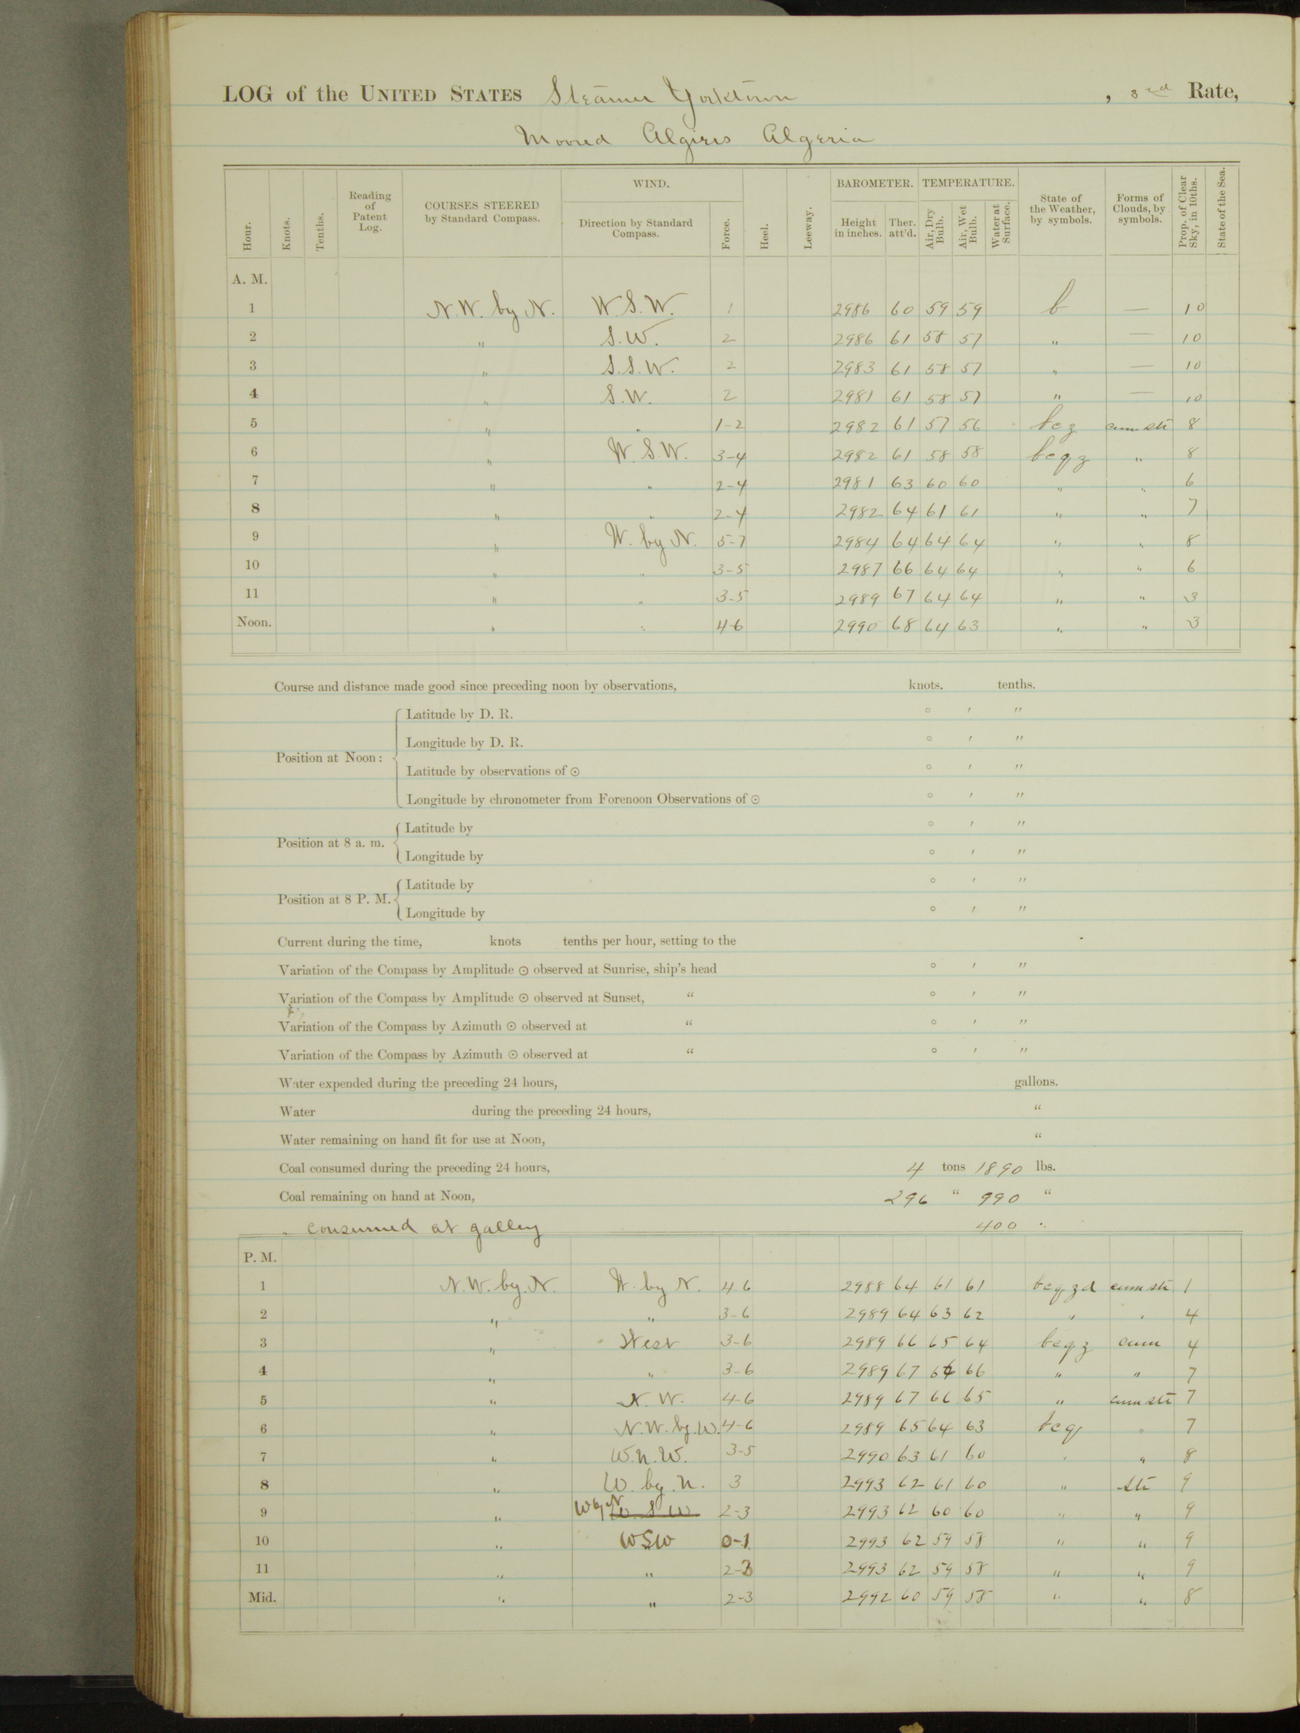 LOG of the UNITED STATES Steamer Yorktown, 3rd Rate,
Moored Algiers Algeria
Hour. Knots. Tenths. Reading of Patent Log. COURSES STEERED by Standard Compass. WIND. Direction by Standard Compass. Force. Heel. Leeway. BAROMETER. Height in inches. Ther. att'd. TEMPERATURE. Air, Dry Bulb. Air, Wet Bulb. Water at Surface. State of the Weather, by symbols. Forms of Clouds, by symbols. Prop. of Clear Sky, in 10ths. State of the Sea.
A. M.
1 N.W. by N. W.S.W. 1 2986 60 59 59 b — 10
2 " S.W. 2 2986 61 58 57 " — 10
3 " S.S.W. 2 2983 61 58 57 " — 10
4 " S.W. 2 2981 61 58 57 " — 10
5 " " 1-2 2982 61 57 56 bcz cum str 8
6 " W.S.W. 3-4 2982 61 58 58 bcqz " 8
7 " " 2-4 2981 63 60 60 " " 6
8 " " 2-4 2982 64 61 61 " " 7
9 " W. by N. 5-7 2984 64 64 64 " " 8
10 " " 3-5 2987 66 64 64 " " 6
11 " " 3-5 2989 67 64 64 " " 3
Noon. " " 4-6 2990 68 64 63 " " 3
Course and distance made good since preceding noon by observations, knots. tenths.
Position at Noon: Latitude by D. R. ° ′ ″
Longitude by D. R. ° ′ ″
Latitude by observations of ☉ ° ′ ″
Longitude by chronometer from Forenoon Observations of ☉ ° ′ ″
Position at 8 a. m. Latitude by ° ′ ″
Longitude by ° ′ ″
Position at 8 P. M. Latitude by ° ′ ″
Longitude by ° ′ ″
Current during the time, knots tenths per hour, setting to the
Variation of the Compass by Amplitude ☉ observed at Sunrise, ship's head ° ′ ″
Variation of the Compass by Amplitude ☉ observed at Sunset, " ° ′ ″
Variation of the Compass by Azimuth ☉ observed at " ° ′ ″
Variation of the Compass by Azimuth ☉ observed at " ° ′ ″
Water expended during the preceding 24 hours, gallons.
Water during the preceding 24 hours, "
Water remaining on hand fit for use at Noon, "
Coal consumed during the preceding 24 hours, 4 tons 1890 lbs.
Coal remaining on hand at Noon, 296 " 990 "
" consumed at galley 400 "
P. M.
1 N.W. by N. W. by N. 4-6 2988 64 61 61 bcqzd cum str 1
2 " " 3-6 2989 64 63 62 " " 4
3 " West 3-6 2989 66 65 64 bcqz cum 4
4 " " 3-6 2989 67 66 " " 7
5 " N.W. 4-6 2989 67 66 65 " cum str 7
6 " N.W. by W. 4-6 2989 65 64 63 bcq " 7
7 " W.N.W. 3-5 2990 63 61 60 " " 8
8 " W. by N. 3 2993 62 61 60 " str 9
9 " W by N W S W 2-3 2993 62 60 60 " " 9
10 " WSW 0-1 2993 62 59 58 " " 9
11 " " 2-3 2993 62 59 58 " " 9
Mid. " " 2-3 2992 60 59 58 " " 8